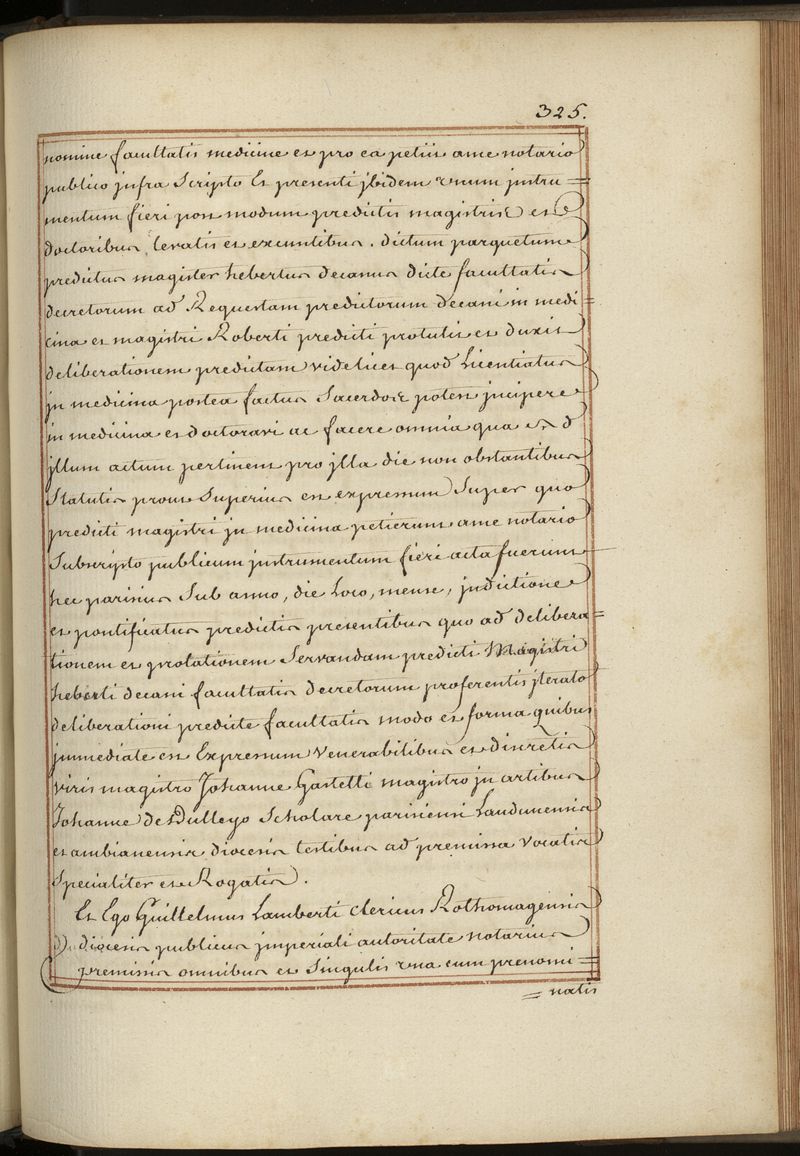 325.
nomine facultatis medicine et pro ea petiit a me notario
publico jnfra Scripto Et presenti jbidem vnum jnstru=
mentum fieri post modum predictis magistris et
doctoribus, levatis et exeuntibus. dictum parquetum
predictus magister hebertus decanus dicte facultatis
decretorum ad Requestam predictorum decani in medi=
cina et magistri Roberti predicti protulit et duxit
deliberationem predictam videlicet quod Licentiatus
jn medicina postea factus Sacerdos potest jncipere
in medicina et doctorari ac facere omnia qua ad
jllum actum pertinent pro jlla die non obstantibus
Statutis prout Superius est expressum Super quo
predicti magistri jn medicina petierunt a me notario
Subscripto publicum jnstrumentum fieri acta fuerunt
hec parisius Sub anno, die Loco, mense, jndictione
et pontificatus predictis presentibus quo ad delibera=
tionem et prolationem Servandam predicti Magistri
heberti decani facultatis decretorum proferentis jterato
deliberationi predicte facultatis modo et forma quibus
jmmediate est Expressum venerabilibus et discretis
viris magistro Johanne Gastelli magistro jn artibus
Johanne de Dullego Scholare parisiensi Laudunensis
et ambianensis diocesis testibus ad premissa vocatis
Specialiter et Rogatis.
Et Ego Guillelmus Lamberti clericus Rothomagensis
diocesis publicus jmperiali autoritate notarius
premissis omnibus et Singulis vna cum prenomi=
=natis